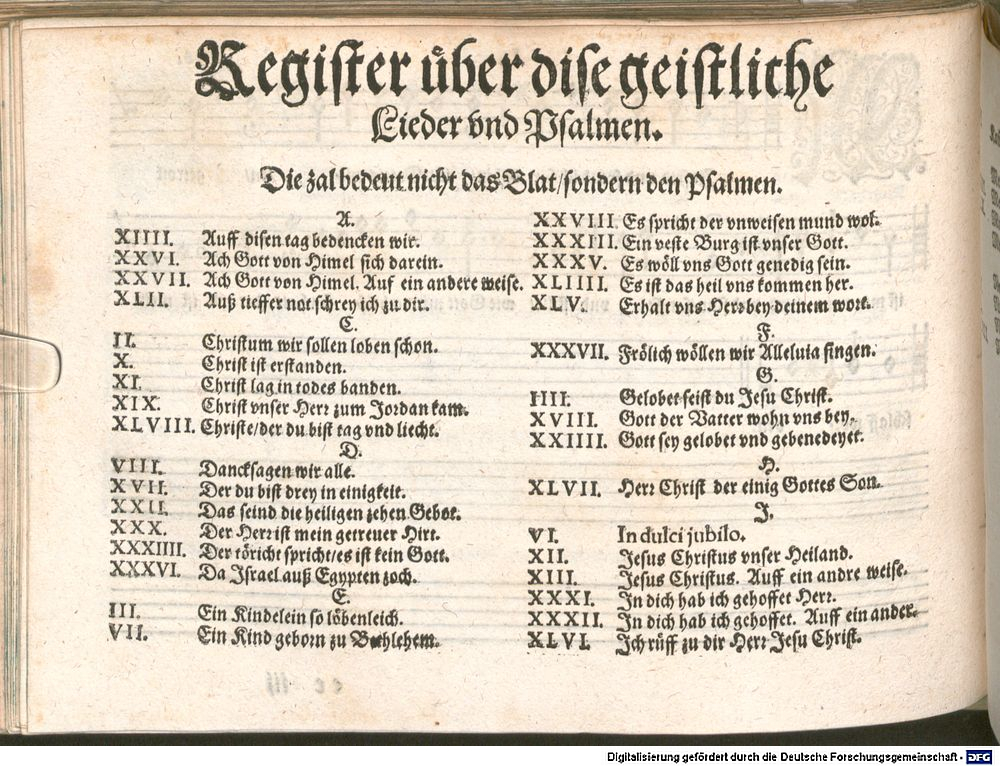 Register über dise geistliche
Lieder vnd Psalmen.
Die zal bedeut nicht das Blat/sondern den Psalmen.
A.
XIIII. Auff disen tag bedencken wir.
XXVI. Ach Gott von Himel sich darein.
XXVII. Ach Gott von Himel. Auf ein andere weise.
XLII. Auß tieffer not schrey ich zu dir.
C.
II. Christum wir sollen loben schon.
X. Christ ist erstanden.
XI. Christ lag in todes banden.
XIX. Christ vnser Herr zum Jordan kam.
XLVIII. Christe/der du bist tag vnd liecht.
D.
VIII. Dancksagen wir alle.
XVII. Der du bist drey in einigkeit.
XXII. Das seind die heiligen zehen Gebot.
XXX. Der Herr ist mein getreuer Hirt.
XXXIIII. Der töricht spricht/es ist kein Gott.
XXXVI. Da Israel auß Egypten zoch.
E.
III. Ein Kindelein so löbenleich.
VII. Ein Kind geborn zu Bethlehem.
XXVIII. Es spricht der vnweisen mund wol.
XXXIII. Ein veste Burg ist vnser Gott.
XXXV. Es wöll vns Gott genedig sein.
XLIIII. Es ist das heil vns kommen her.
XLV. Erhalt vns Herr bey deinem wort.
F.
XXXVII. Frölich wöllen wir Alleluia singen.
G.
IIII. Gelobet seist du Jesu Christ.
XVIII. Gott der Vatter wohn vns bey.
XXIIII. Gott sey gelobet vnd gebenedeyet.
H.
XLVII. Herr Christ der einig Gottes Son.
J.
VI. In dulci jubilo.
XII. Jesus Christus vnser Heiland.
XIII. Jesus Christus. Auff ein andre weise.
XXXI. In dich hab ich gehoffet Herr.
XXXII. In dich hab ich gehoffet. Auff ein ander.
XLVI. Ich rüff zu dir Herr Jesu Christ.
Digitalisierung gefördert durch die Deutsche Forschungsgemeinschaft - DFG